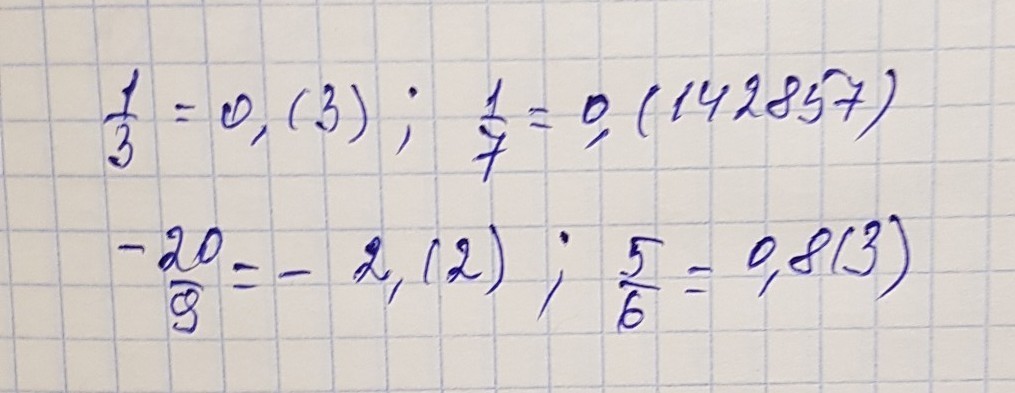 1/3 = 0,(3) ; 1/7 = 0,(142857)
-20/9 = - 2,(2) ; 5/6 = 0,8(3)